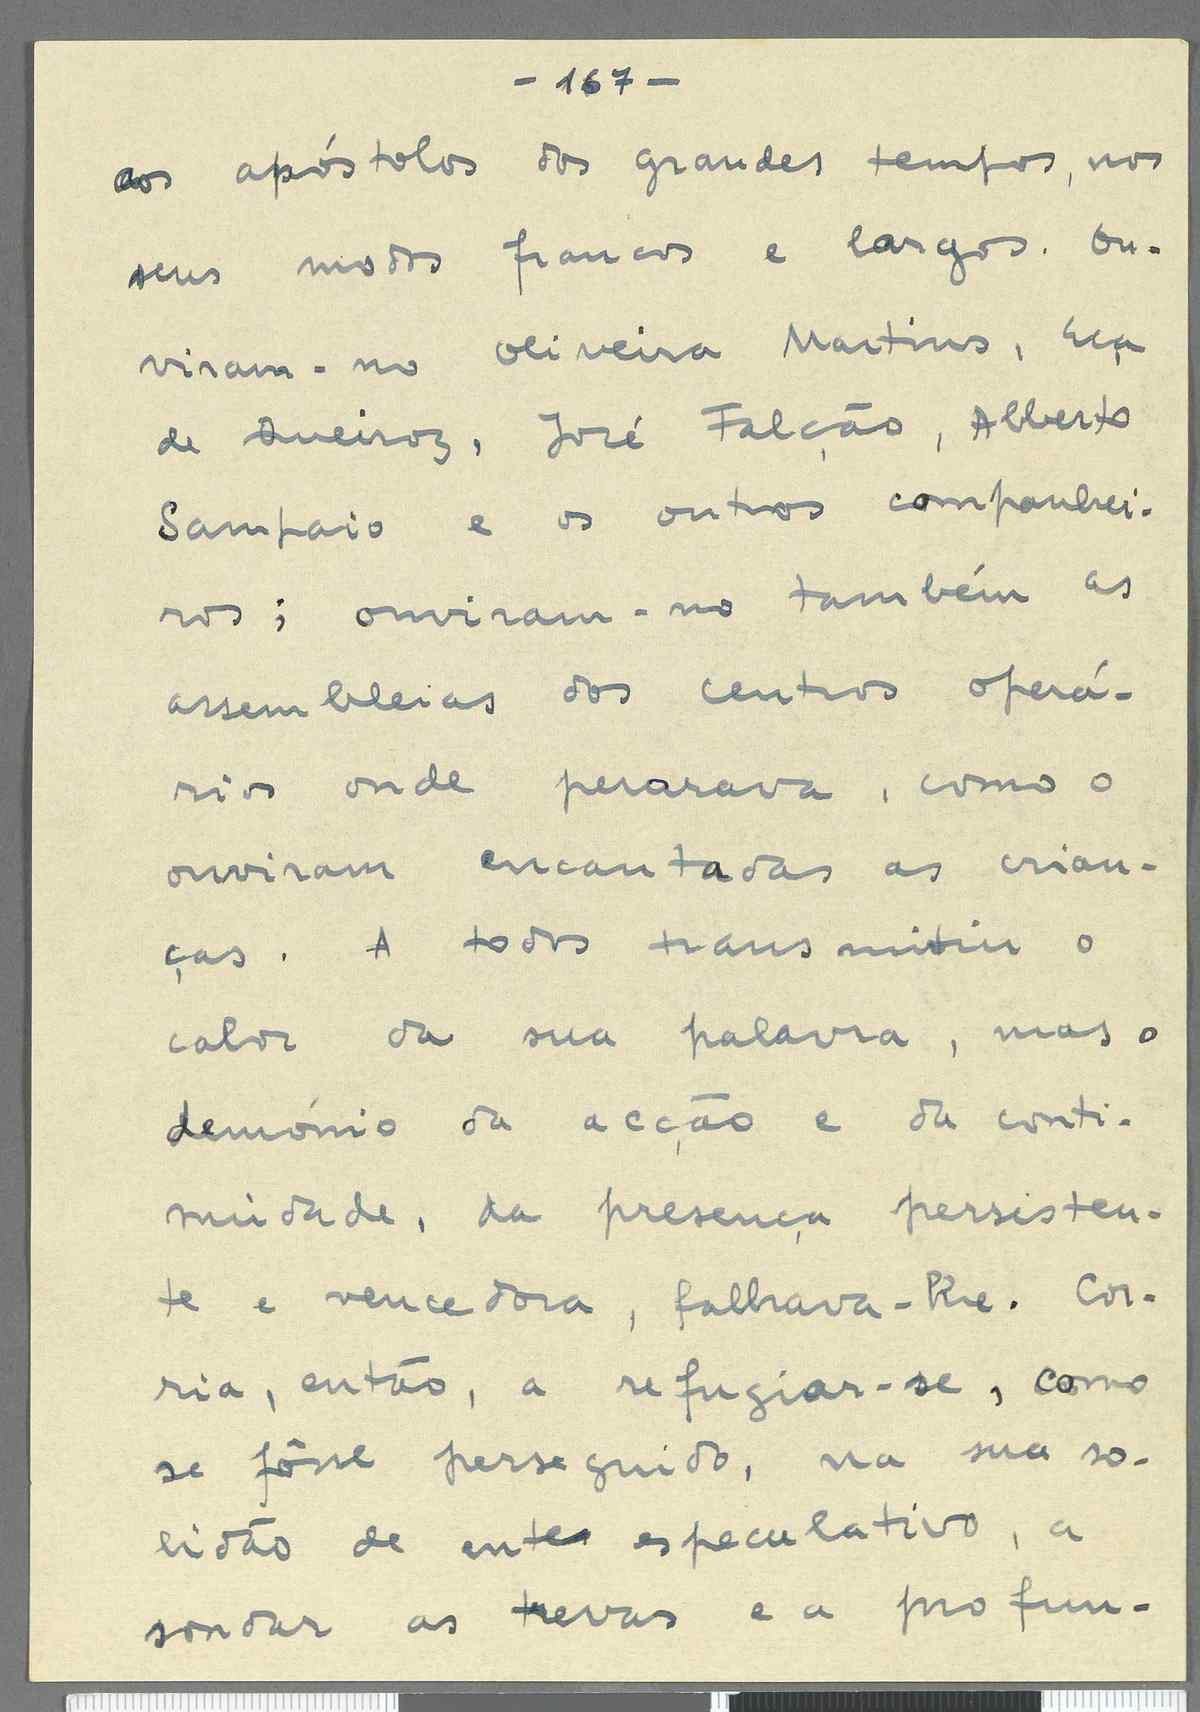 - 167 -
aos apóstolos dos grandes tempos, nos
seus modos francos e largos. Ou-
viram-no Oliveira Martins, Eça
de Queiroz, José Falcção, Alberto
Sampaio e os outros companhei-
ros; ouviram-no também as
assembleias dos centros operá-
rios onde perorava, como o
ouviram encantadas as crian-
ças. A todos transmitiu o
calor da sua palavra, mas o
demónio da acção e da conti-
nuidade, da presença persisten-
te e vencedora, falhava-lhe. Cor-
ria, então, a refugiar-se, como
se fôsse perseguido, na sua so-
lidão de ente especulativo, a
sondar as trevas e a profun-